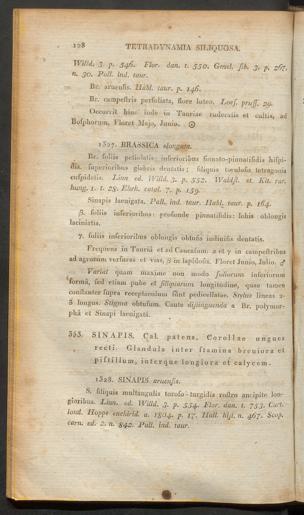 128 TETRADYNAMIA SILIQUOSA.
Willd. 3. p. 546. Flor. dan. t. 550. Gmel. sib. 3. p. 267.
n. 30. Pall. ind. taur.
Br. aruensis. Habl. taur. p. 146.
Br. campestris perfoliata, flore luteo. Loes. pruss. 29.
Occurrit hinc inde in Tauriae ruderatis et cultis, ad
Bosphorum. Floret Majo, Junio. ☉
1327. BRASSICA elongata.
Br. foliis petiolatis: inferioribus sinuato-pinnatifidis hispi-
dis, superioribus glabris dentatis; siliquis torulosis tetragonis
cuspidatis. Linn ed. Willd. 3. p. 552. Waldst. et Kit. rar.
hung. 1. t. 28. Ehrh. catal. 7. p. 159.
Sinapis laeuigata. Pall. ind. taur. Habl. taur. p. 164.
β. foliis inferioribus: profunde pinnatifidis: lobis oblongis
laciniatis.
γ. foliis inferioribus oblongis obtusis indiuisis dentatis.
Frequens in Tauria et ad Caucasum: α et γ in campestribus
ad agrorum versuras et vias, β in lapidosis. Floret Junio, Julio. ♂
Variat quam maxime non modo foliorum inferiorum
forma, sed etiam pube et siliquarum longitudine, quae tamen
constanter supra receptaculum sunt pedicellatae. Stylus lineas 2-
3 longus. Stigma obtusum. Caute distinguenda a Br. polymor-
pha et Sinapi laeuigata.
353. SINAPIS. Cal. patens. Corollae ungues
recti. Glandula inter stamina breuiora et
pistillum, interque longiora et calycem.
1328. SINAPIS aruensis.
S. siliquis multangulis toroso-turgidis rostro ancipite lon-
gioribus. Linn. ed. Willd. 3. p. 554. Flor. dan. t. 753. Curt.
lond. Hoppe enchirid. a. 1804. p. 17. Hall. hist. n. 467. Scop.
carn. ed. 2. n. 842. Pall. ind. taur.